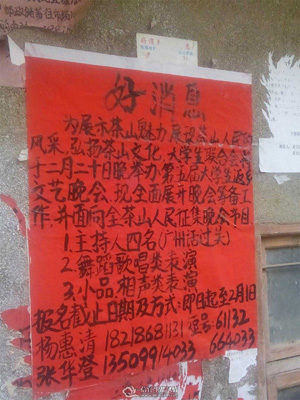 好消息
为展示茶山魅力 展设茶山人民的
风采,弘扬茶山文化,大学生联合会
于二月二十日举办第五届大学生返乡
文艺晚会,现全面展开晚会筹备工
作,并面向全茶山人民征集晚会节目
1.主持人四名(广州话过关)
2.舞蹈歌唱类表演
3.小品相声类表演
报名截止日期及方式:即日起至2月1
杨惠清 18218681131 短号:61132
张华登 13509914033 664033